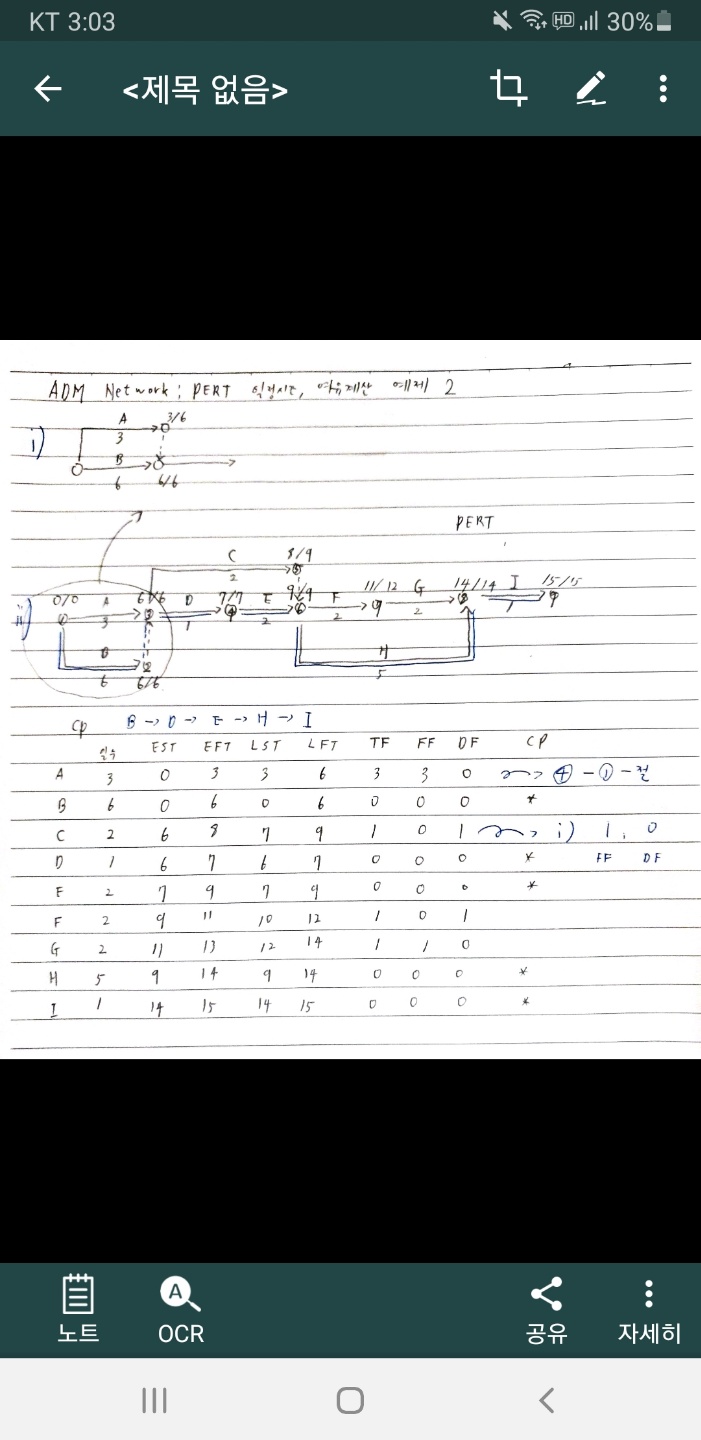 KT 3:03 HD 30%
<제목 없음>
ADM Network : PERT 일정시간, 여유계산 예제 2
i) A 3 3/6
B 6 6/6
PERT
C 2 8/9
ii) 0/0 A 3 6/6 D 1 7/7 E 2 9/9 F 2 11/12 G 2 14/14 I 1 15/15
B 6 6/6
H 5
CP B → D → E → H → I
일수 EST EFT LST LFT TF FF DF CP
A 3 0 3 3 6 3 3 0 → ④ - ① - 절
B 6 0 6 0 6 0 0 0 *
C 2 6 8 7 9 1 0 1 → i) 1, 0
D 1 6 7 6 7 0 0 0 * FF DF
E 2 7 9 7 9 0 0 0 *
F 2 9 11 10 12 1 0 1
G 2 11 13 12 14 1 1 0
H 5 9 14 9 14 0 0 0 *
I 1 14 15 14 15 0 0 0 *
노트 OCR 공유 자세히